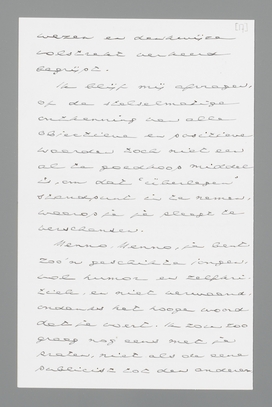 [15]
wezen en denkwijze
volstrekt verkeerd
begrijpt.
Ik blijf mij afvragen,
of de stelselmatige
ontkenning van alle
objectieve en positieve
waarden toch niet een
al te goedkoop middel
is, om dat "überlegen"
standpunt in te nemen,
waarop je je pleegt te
verschansen.
Menno, Menno, je bent
zoo'n geschikte jongen,
vol humor en zelfcri-
tiek, en niet verwaand,
ondanks het hooge woord
dat je voert. Ik zou zoo
graag nog eens met je
praten, niet als de eene
publicist tot den anderen